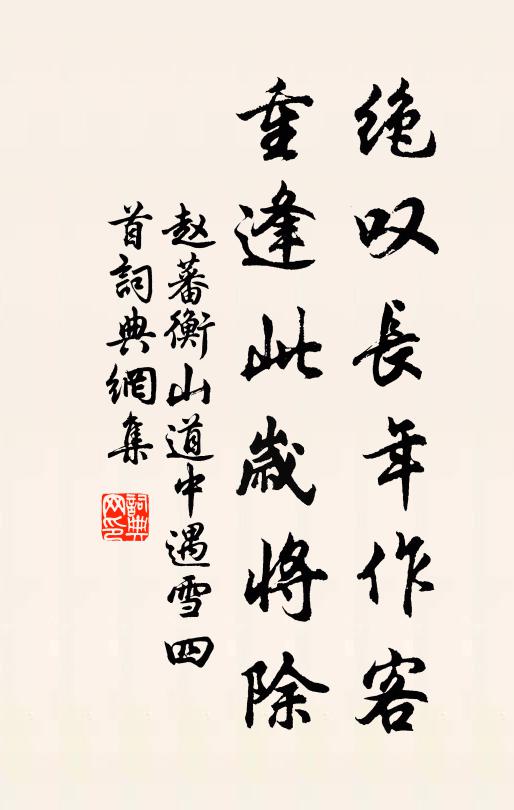 绝叹長年作客
重逢此歲將除
赵蕃衡山道中遇雪四
首詞典網集
詞典
网印